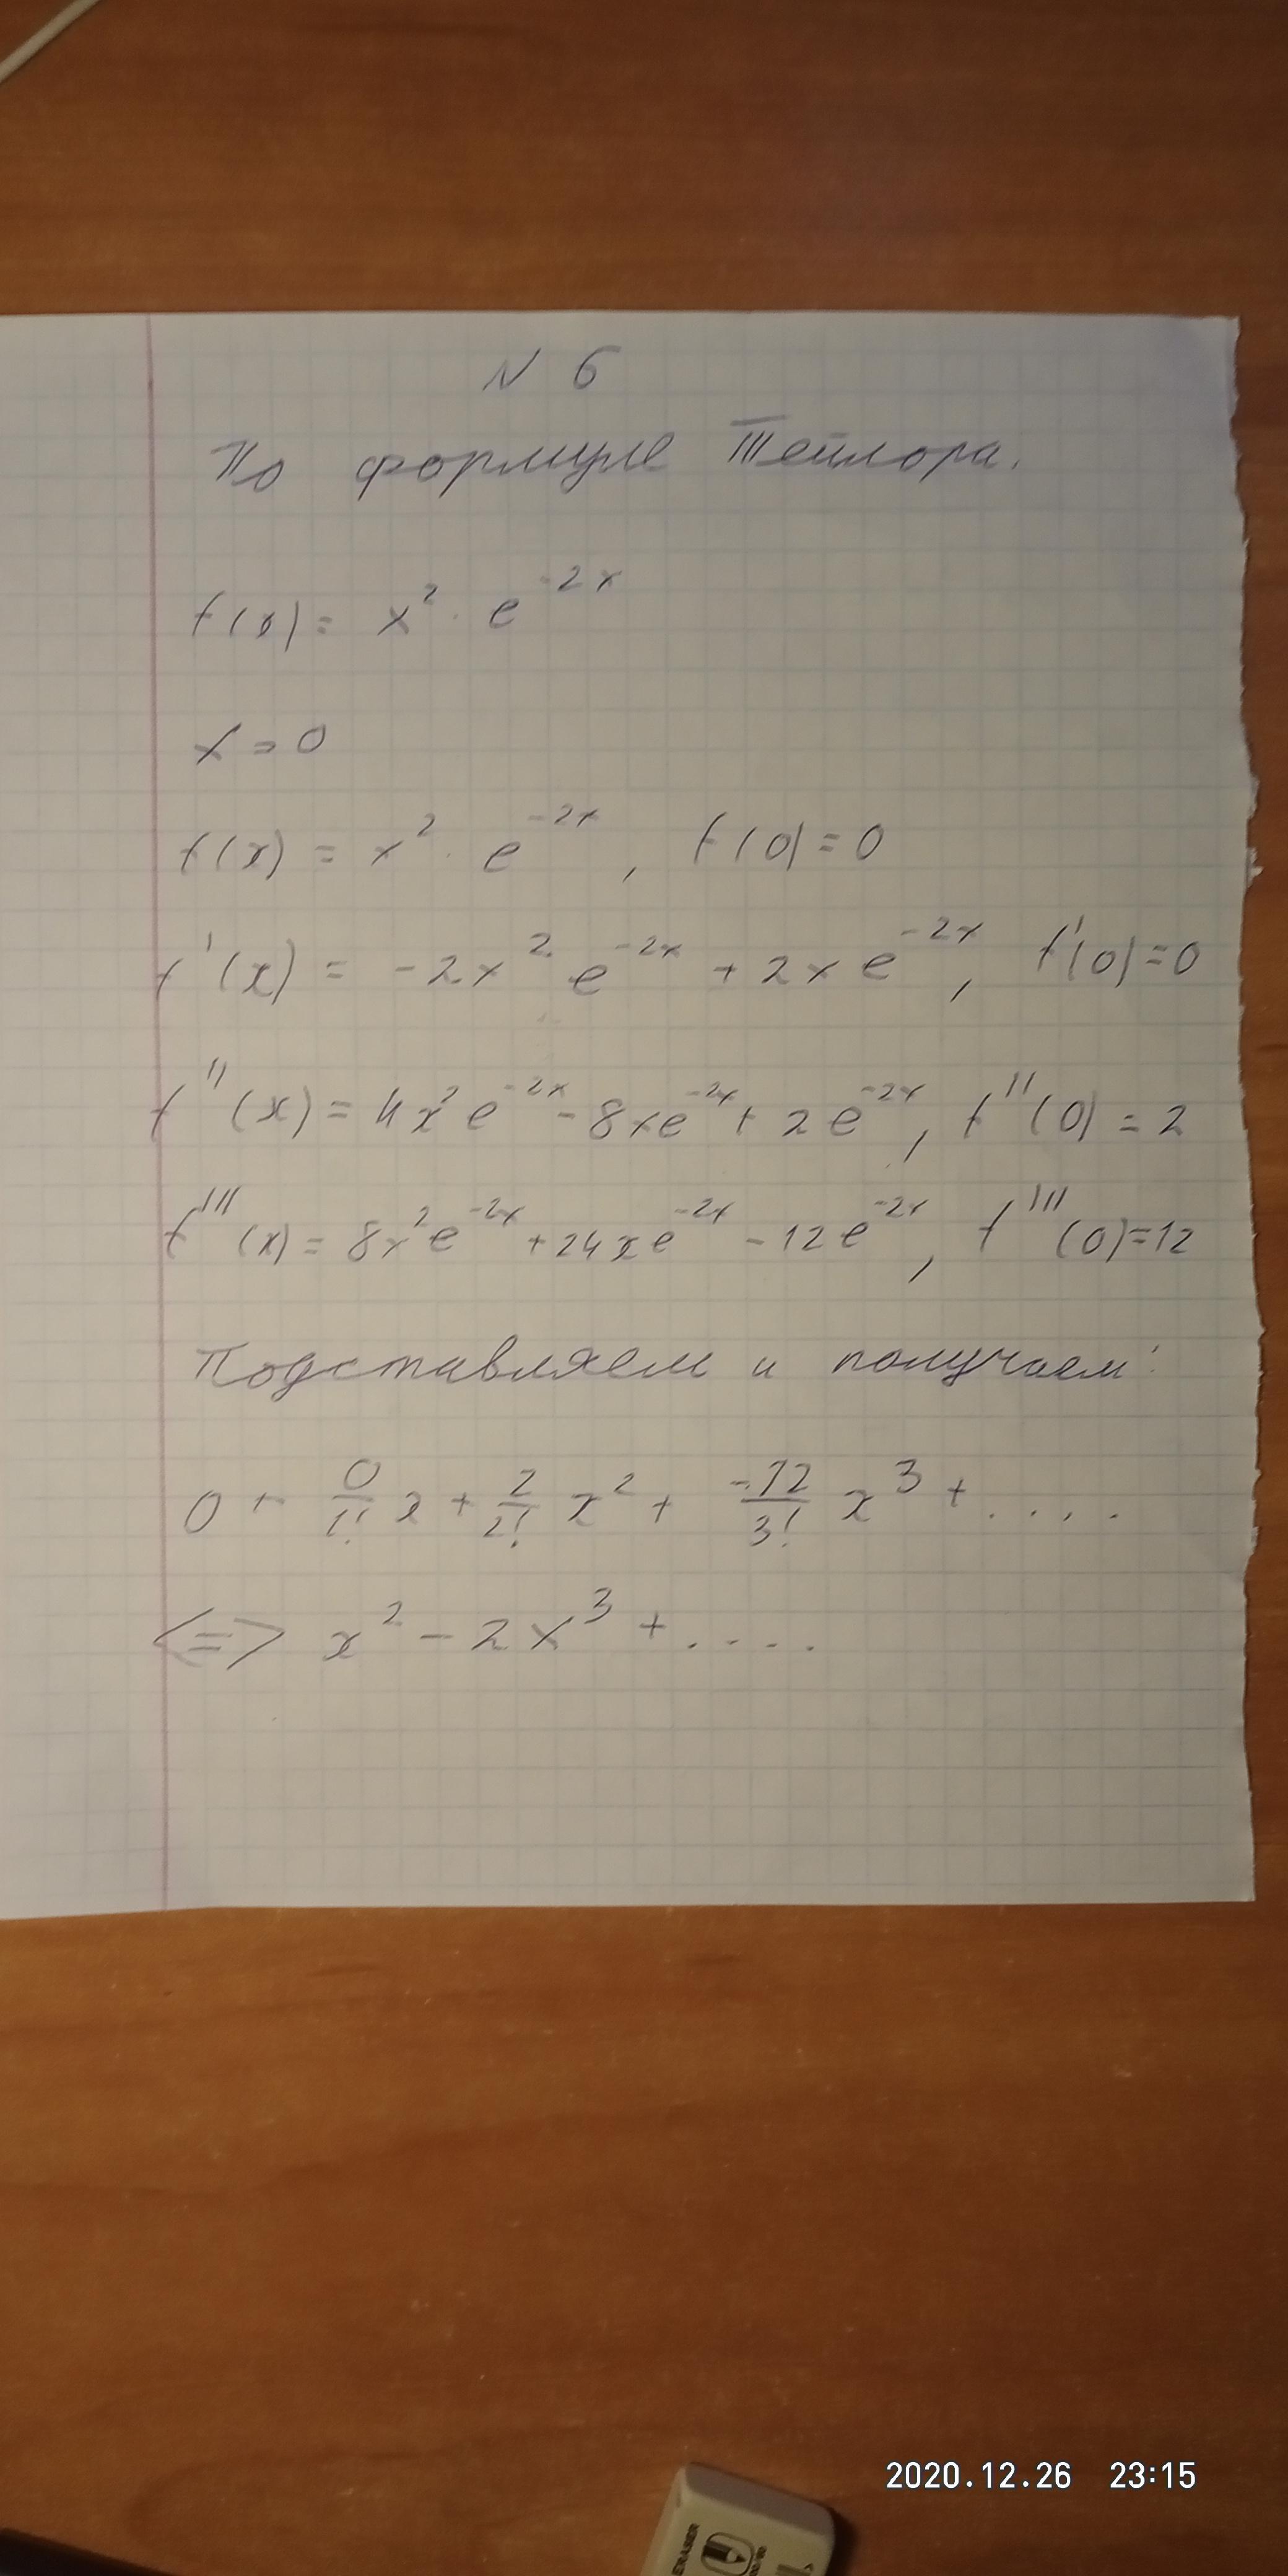 N 6
По формуле Тейлора.
f(x) = x² · e^{-2x}
x = 0
f(x) = x² · e^{-2x}, f(0) = 0
f'(x) = -2x² e^{-2x} + 2x e^{-2x}, f'(0) = 0
f''(x) = 4x² e^{-2x} - 8x e^{-2x} + 2 e^{-2x}, f''(0) = 2
f'''(x) = 8x² e^{-2x} + 24x e^{-2x} - 12 e^{-2x}, f'''(0) = 12
Подставляем и получаем:
0 + 0/1! x + 2/2! x² + -12/3! x³ + ....
<=> x² - 2x³ + ....
2020.12.26 23:15
ERASER